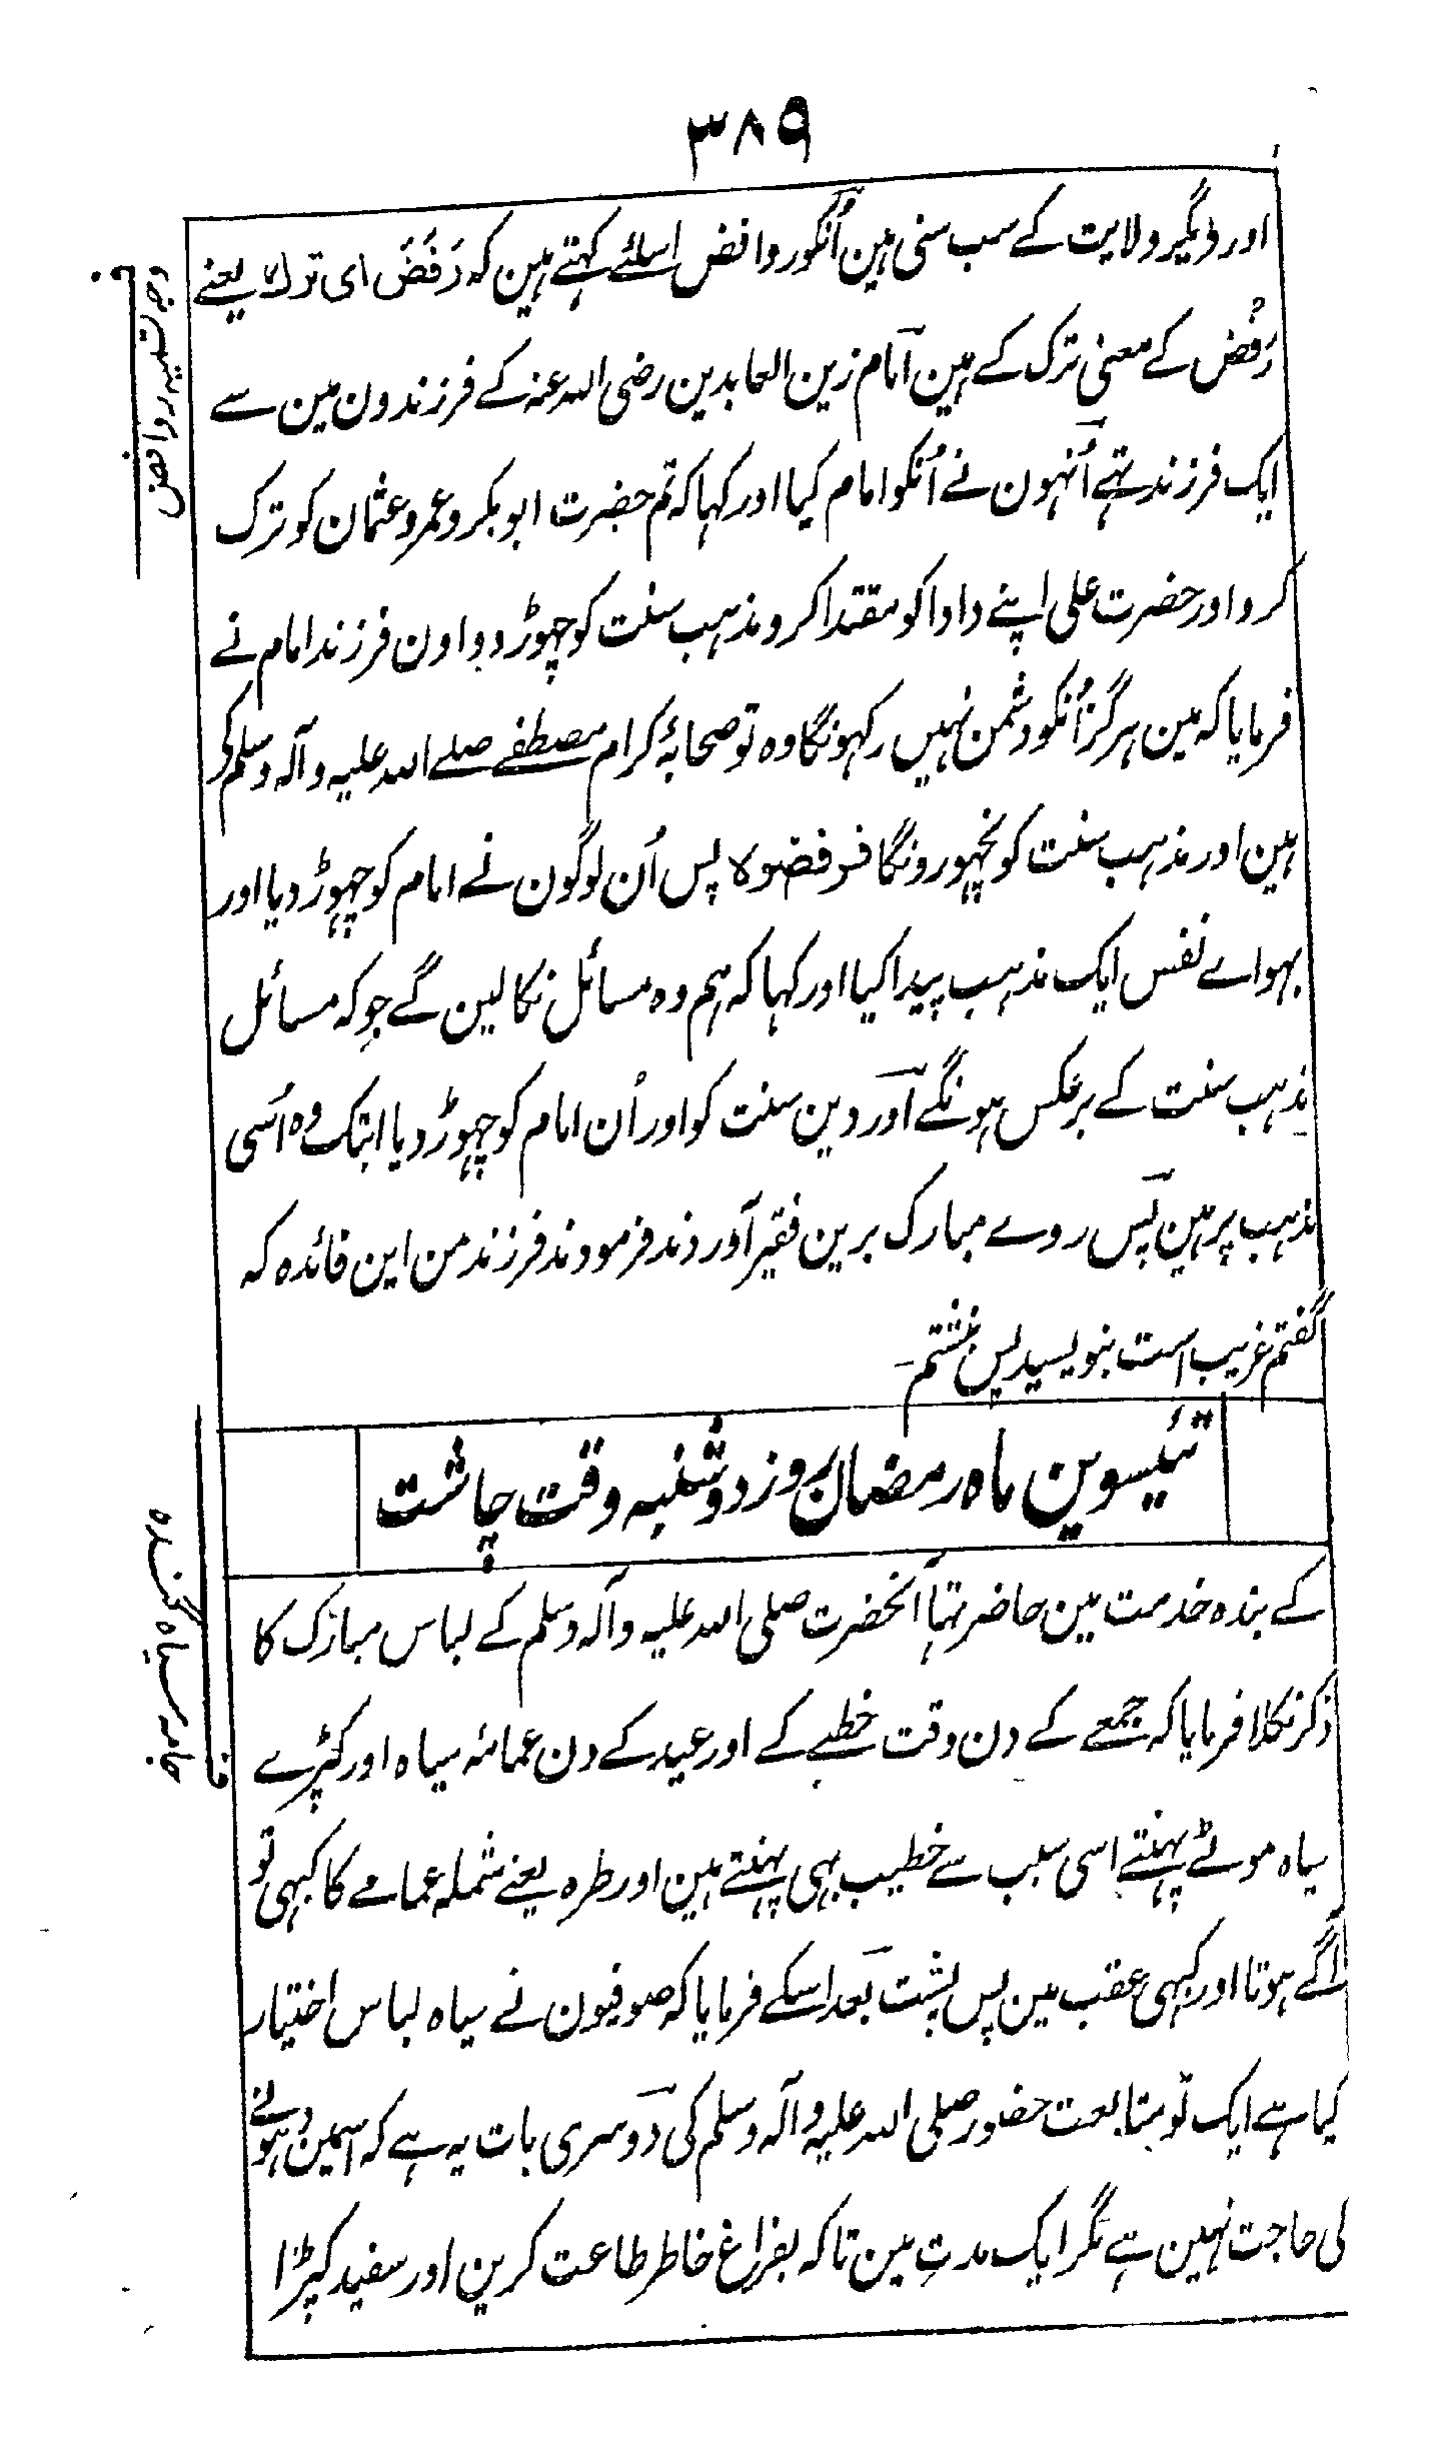 ۳۸۹
اور دیگر ولایت کے سب سنی ہین اُنکو روافض اسلئے کہتے ہین کہ رَفَضَ ای ترك یعنے
رَفْض کے معنی ترک کے ہین امام زین العابدین رضی اللہ عنہ کے فرزندون مین سے
ایک فرزند تہے اُنہون نے اُنکو امام کیا اور کہا کہ تم حضرت ابوبکر و عمر و عثمان کو ترک
کرو اور حضرت علی اپنے دادا کو مقتدا کرو مذہب سنت کو چہوڑ دو اون فرزند امام نے
فرمایا کہ مین ہرگز اُنکو دشمن نہیں رکہونگا وہ تو صحابۂ کرام مصطفے صلے اللہ علیہ و آلہ وسلم کی
ہین اور مذہب سنت کو نچہورونگا فرفضوہ پس اُن لوگون نے امام کو چہوڑ دیا اور
بہواے نفس ایک مذہب پیدا کیا اور کہا کہ ہم وہ مسائل نکالین گے جو کہ مسائل
مذہب سنت کے برعکس ہونگے اور دین سنت کو اور اُن امام کو چہوڑ دیا ابتک وہ اُسی
مذہب پر ہین پس روے مبارک برین فقیر آوردند فرمودند فرزند من این فائدہ کہ
گفتم غریب است بنویسید پس نبشتم۔
تئیسوین ماہ رمضان بروز دوشنبہ وقت چاشت
کے بندہ خدمت مین حاضر تہا آنحضرت صلی اللہ علیہ و آلہ وسلم کے لباس مبارک کا
ذکر نکلا فرمایا کہ جمعے کے دن وقت خطبے کے اور عید کے دن عمامۂ سیاہ اور کپڑے
سیاہ موٹے پہنتے اسی سبب سے خطیب بہی پہنتے ہین اور طرہ یعنے شملہ عمامے کا کبہی تو
آگے ہوتا اور کبہی عقب مین پس پشت بعد اسکے فرمایا کہ صوفیون نے سیاہ لباس اختیار
کیا ہے ایک تو متابعت حضور صلی اللہ علیہ و آلہ وسلم کی دوسری بات یہ ہے کہ اسمین دہونے
کی حاجت نہین ہے مگر ایک مدت مین تاکہ بفراغ خاطر طاعت کرین اور سفید کپڑا
جامہ سیاہ گندہ